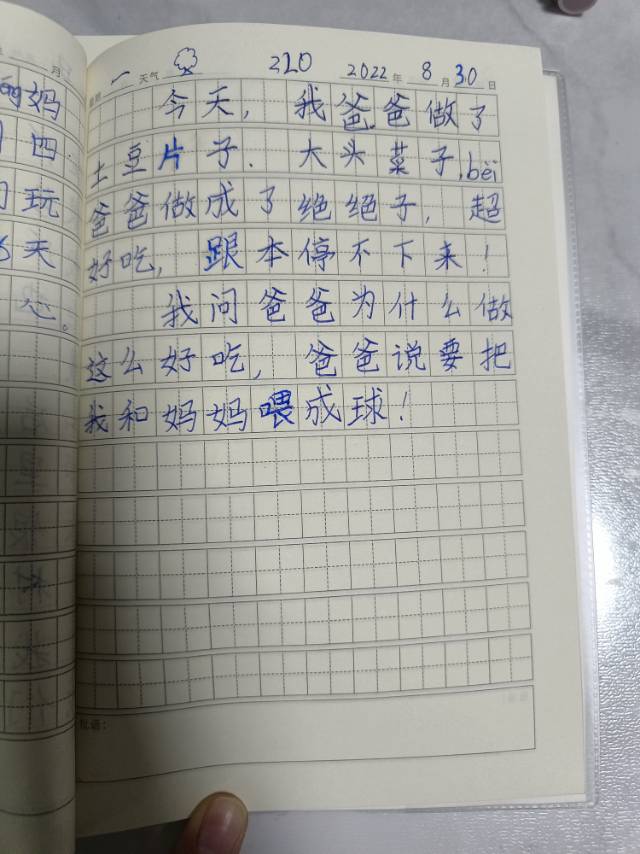 月
妈
四
玩
天
心。
星期 一 天气 220 2022年 8月30日
今天, 我爸爸做了
土豆片子. 大头菜子, bèi
爸爸做成了绝绝子, 超
好吃, 跟本停不下来!
我问爸爸为什么做
这么好吃, 爸爸说要把
我和妈妈喂成球!
批语: